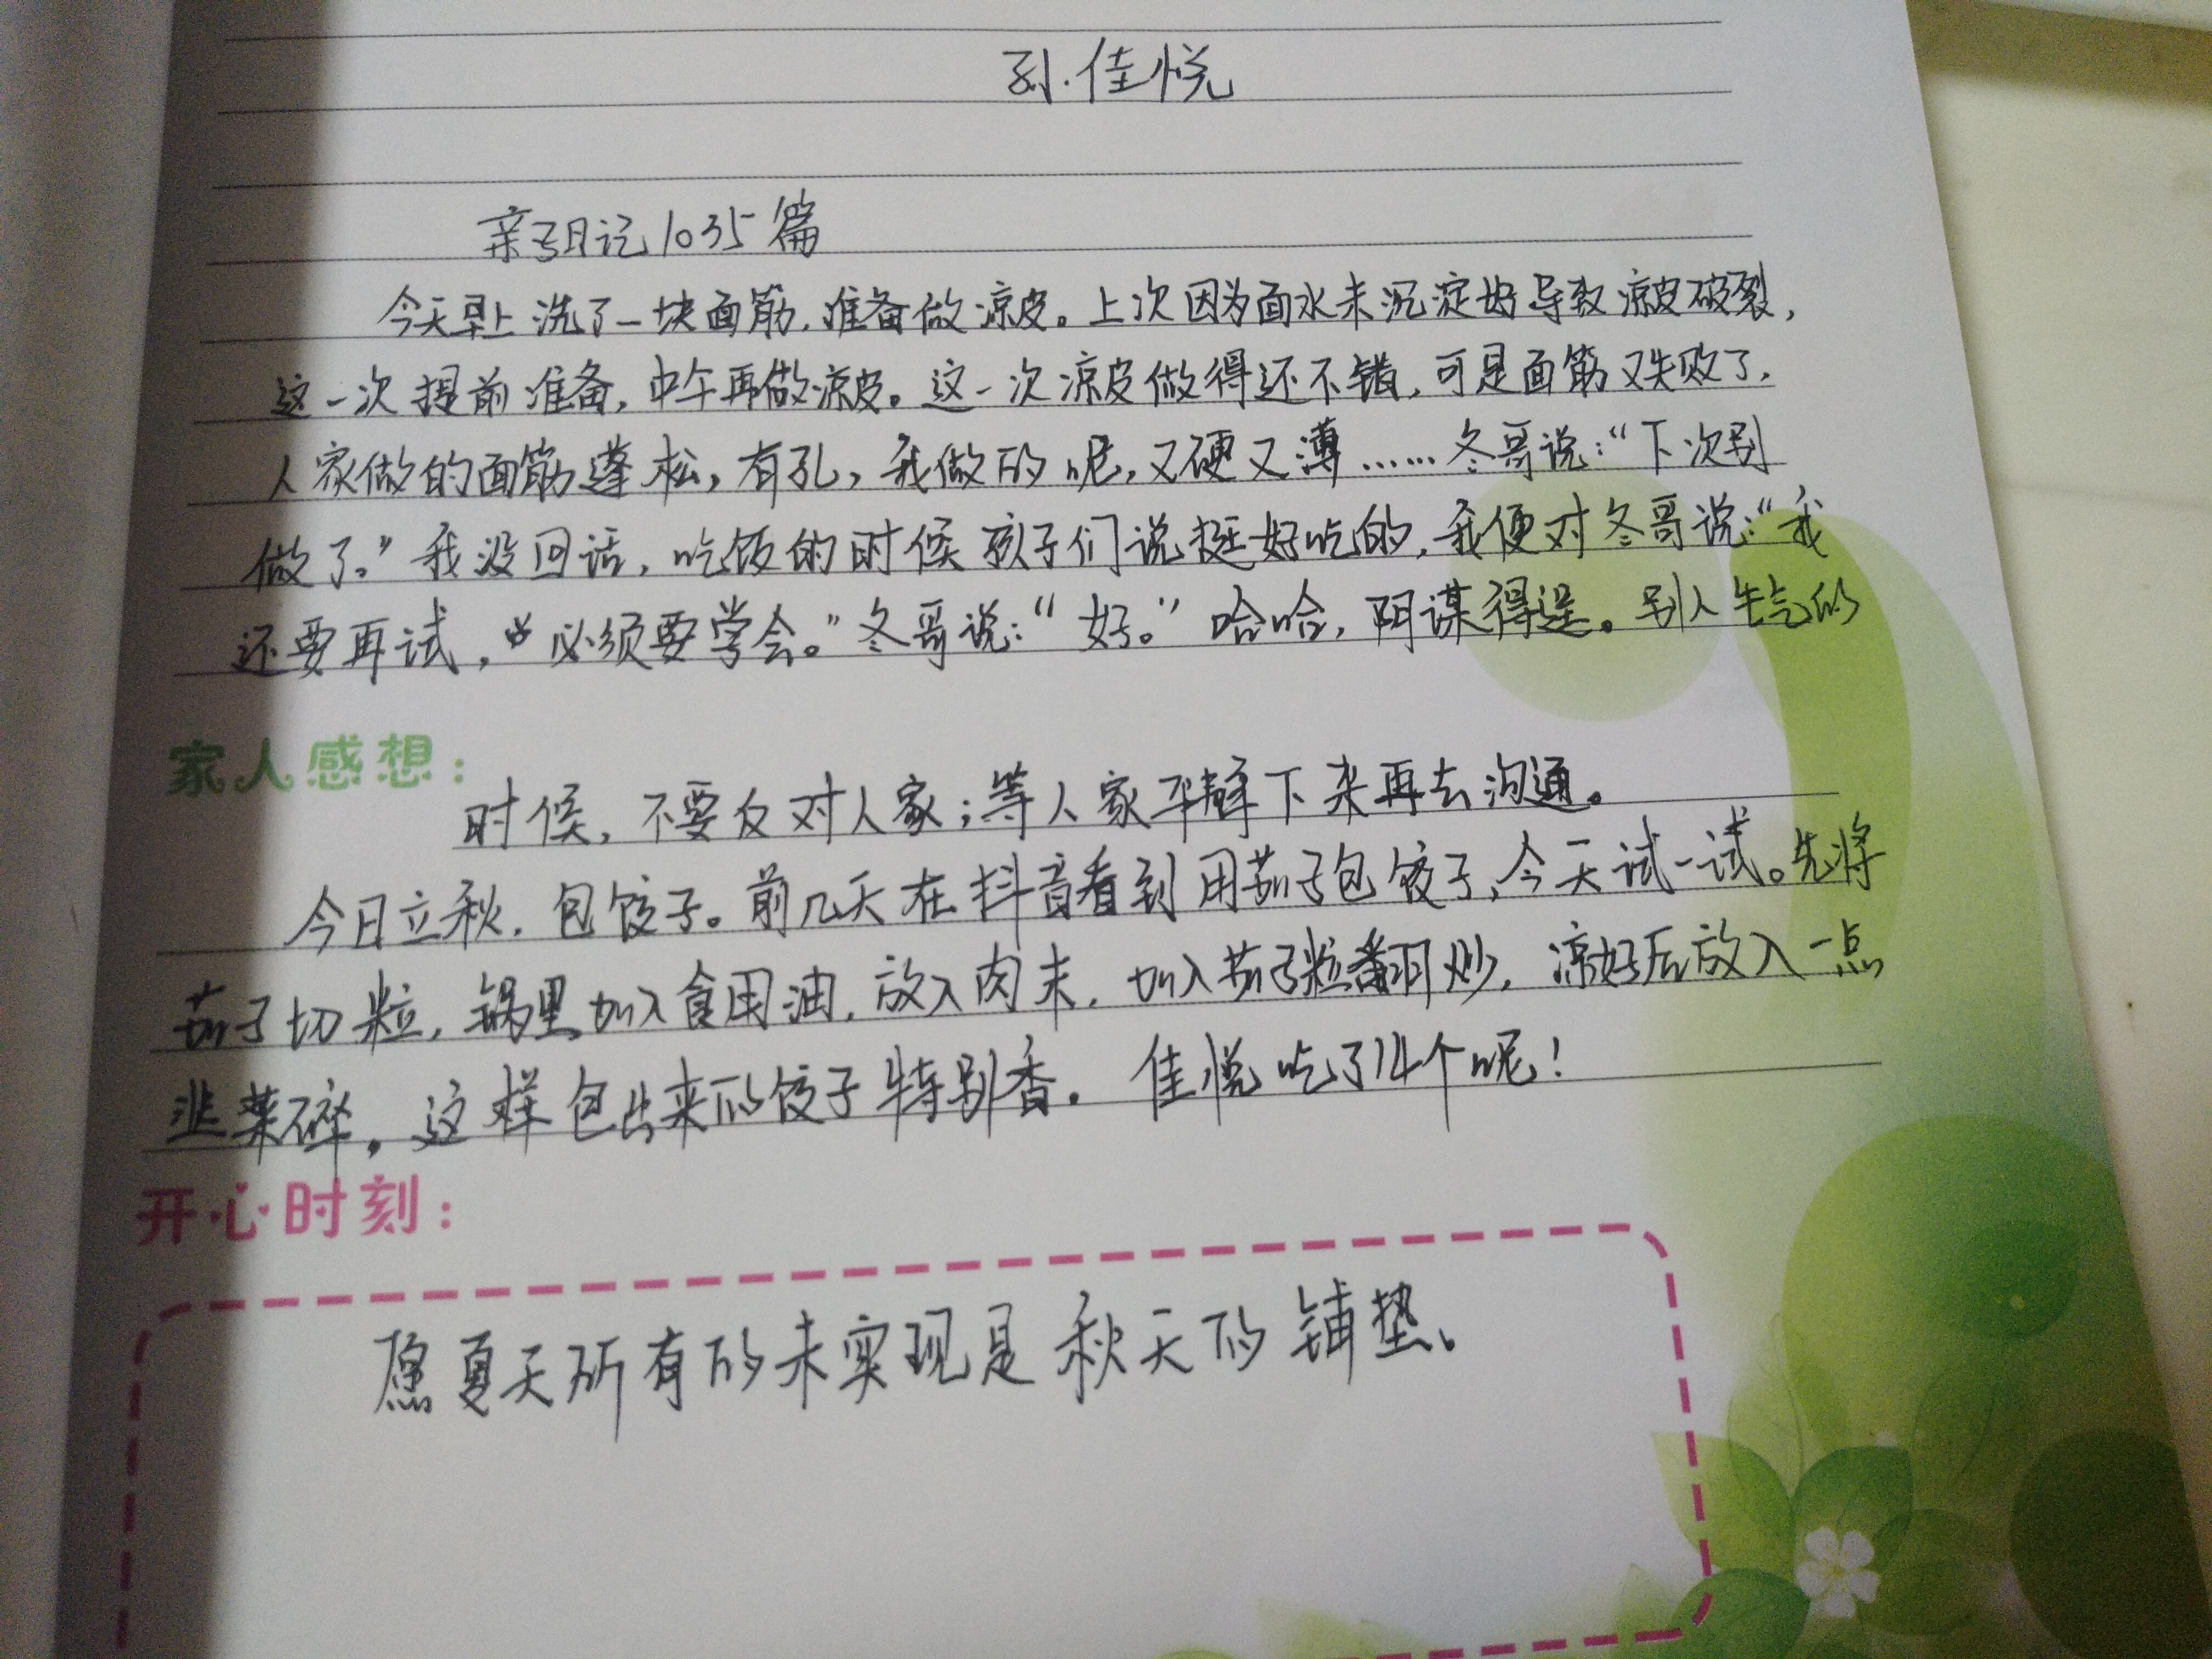 孙佳悦
亲子日记1035篇
今天早上洗了一块面筋,准备做凉皮。上次因为面水未沉淀好导致凉皮破裂,
这一次提前准备,中午再做凉皮。这一次凉皮做得还不错,可是面筋又失败了,
人家做的面筋蓬松,有孔,我做的呢,又硬又薄……冬哥说:“下次别
做了。”我没回话,吃饭的时候孩子们说挺好吃的,我便对冬哥说:“我
还要再试,必须要学会。”冬哥说:“好。”哈哈,阴谋得逞。别人生气的
家人感想:
时候,不要反对人家;等人家平静下来再去沟通。
今日立秋,包饺子。前几天在抖音看到用茄子包饺子,今天试一试。先将
茄子切粒,锅里加入食用油,放入肉末,加入茄子粒翻炒,凉好后放入一点
韭菜碎,这样包出来的饺子特别香。佳悦吃了14个呢!
开心时刻:
愿夏天所有的未实现是秋天的铺垫。